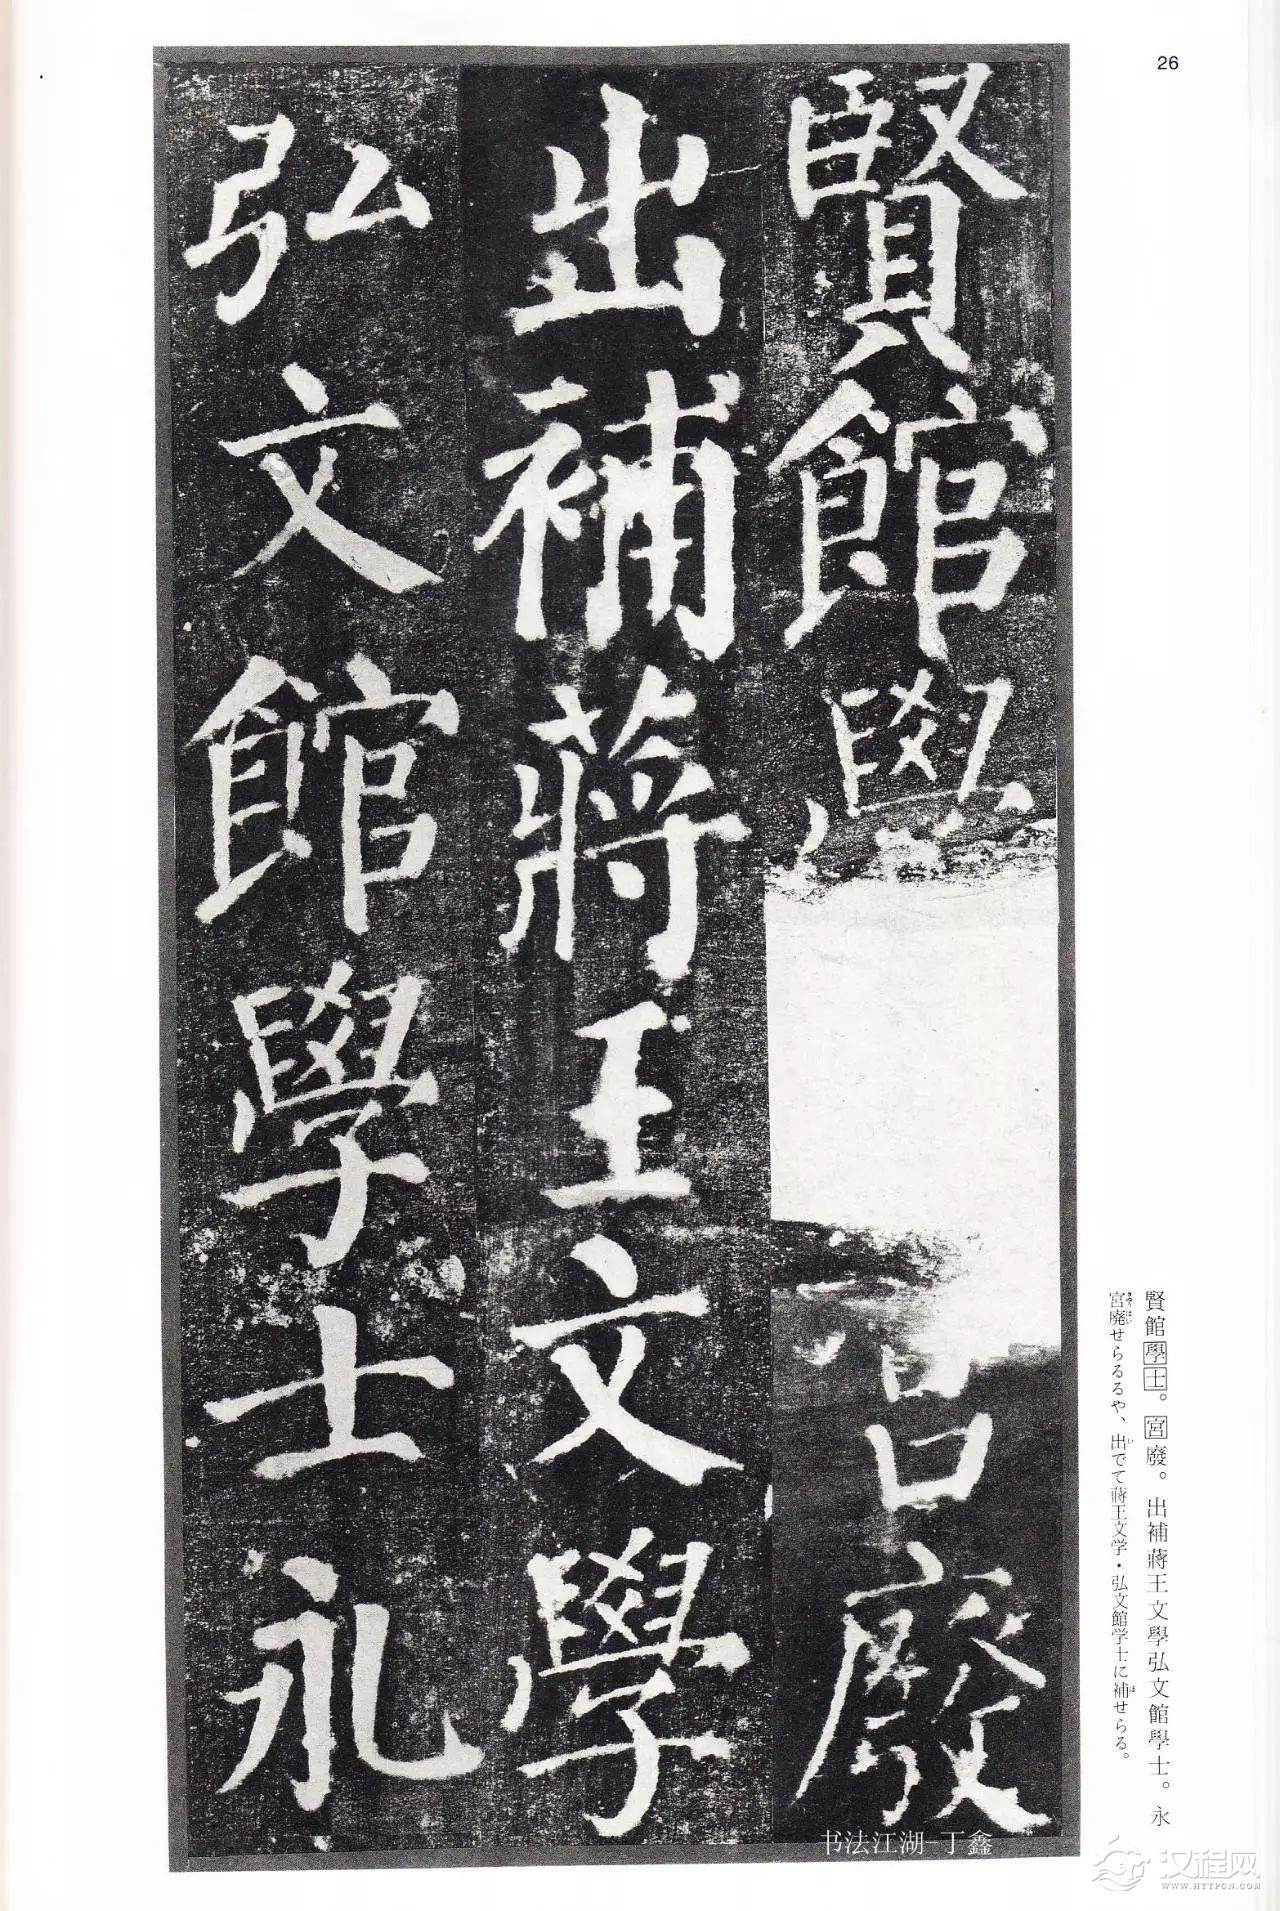 26
賢館學
宮廢
出補蔣王文學
弘文館學士永
賢館學士。宮廢。出補蔣王文學弘文館學士。永
宮廃せらるるや、出でて蔣王文学・弘文館学士に補せらる。
书法江湖-丁鑫
汉程网
WWW.HTTPCN.COM